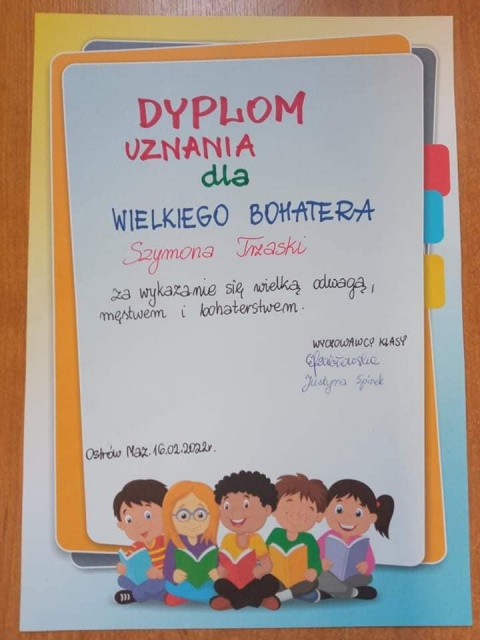 DYPLOM
UZNANIA
dla
WIELKIEGO BOHATERA
Szymona Trzaski
za wykazanie się wielką odwagą,
męstwem i bohaterstwem.
WYCHOWAWCY KLASY
Justyna Spinek
Ostrów Maz. 16.02.2022r.